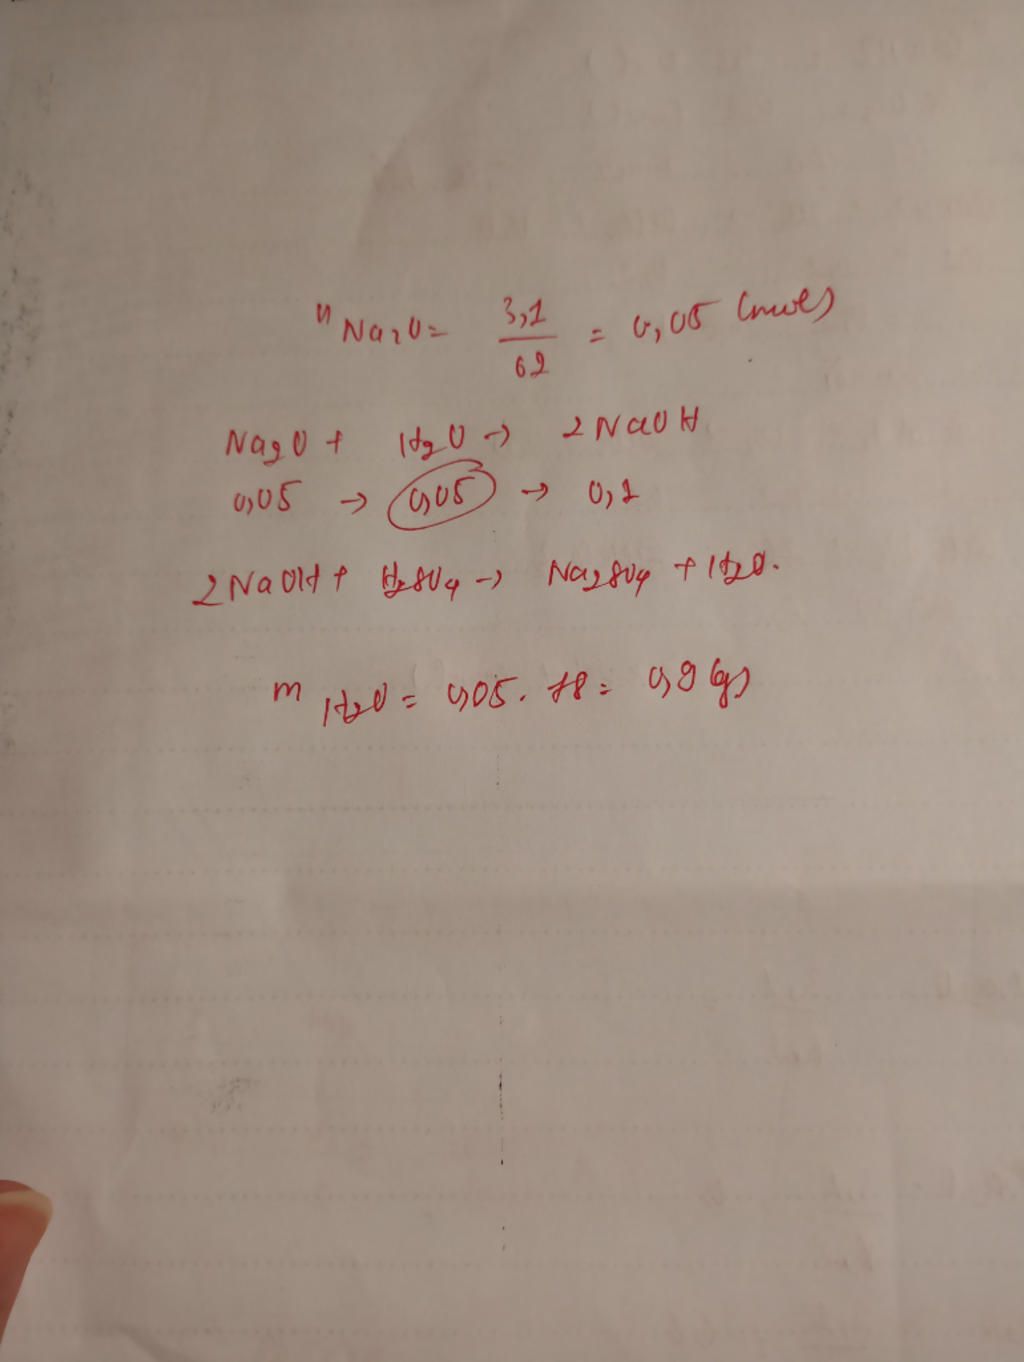 n Na2O = 3,1 / 62 = 0,05 (mol)
Na2O + H2O → 2NaOH
0,05 → 0,05 → 0,1
2NaOH + H2SO4 → Na2SO4 + H2O.
m H2O = 0,05 . 18 = 0,9 (g)